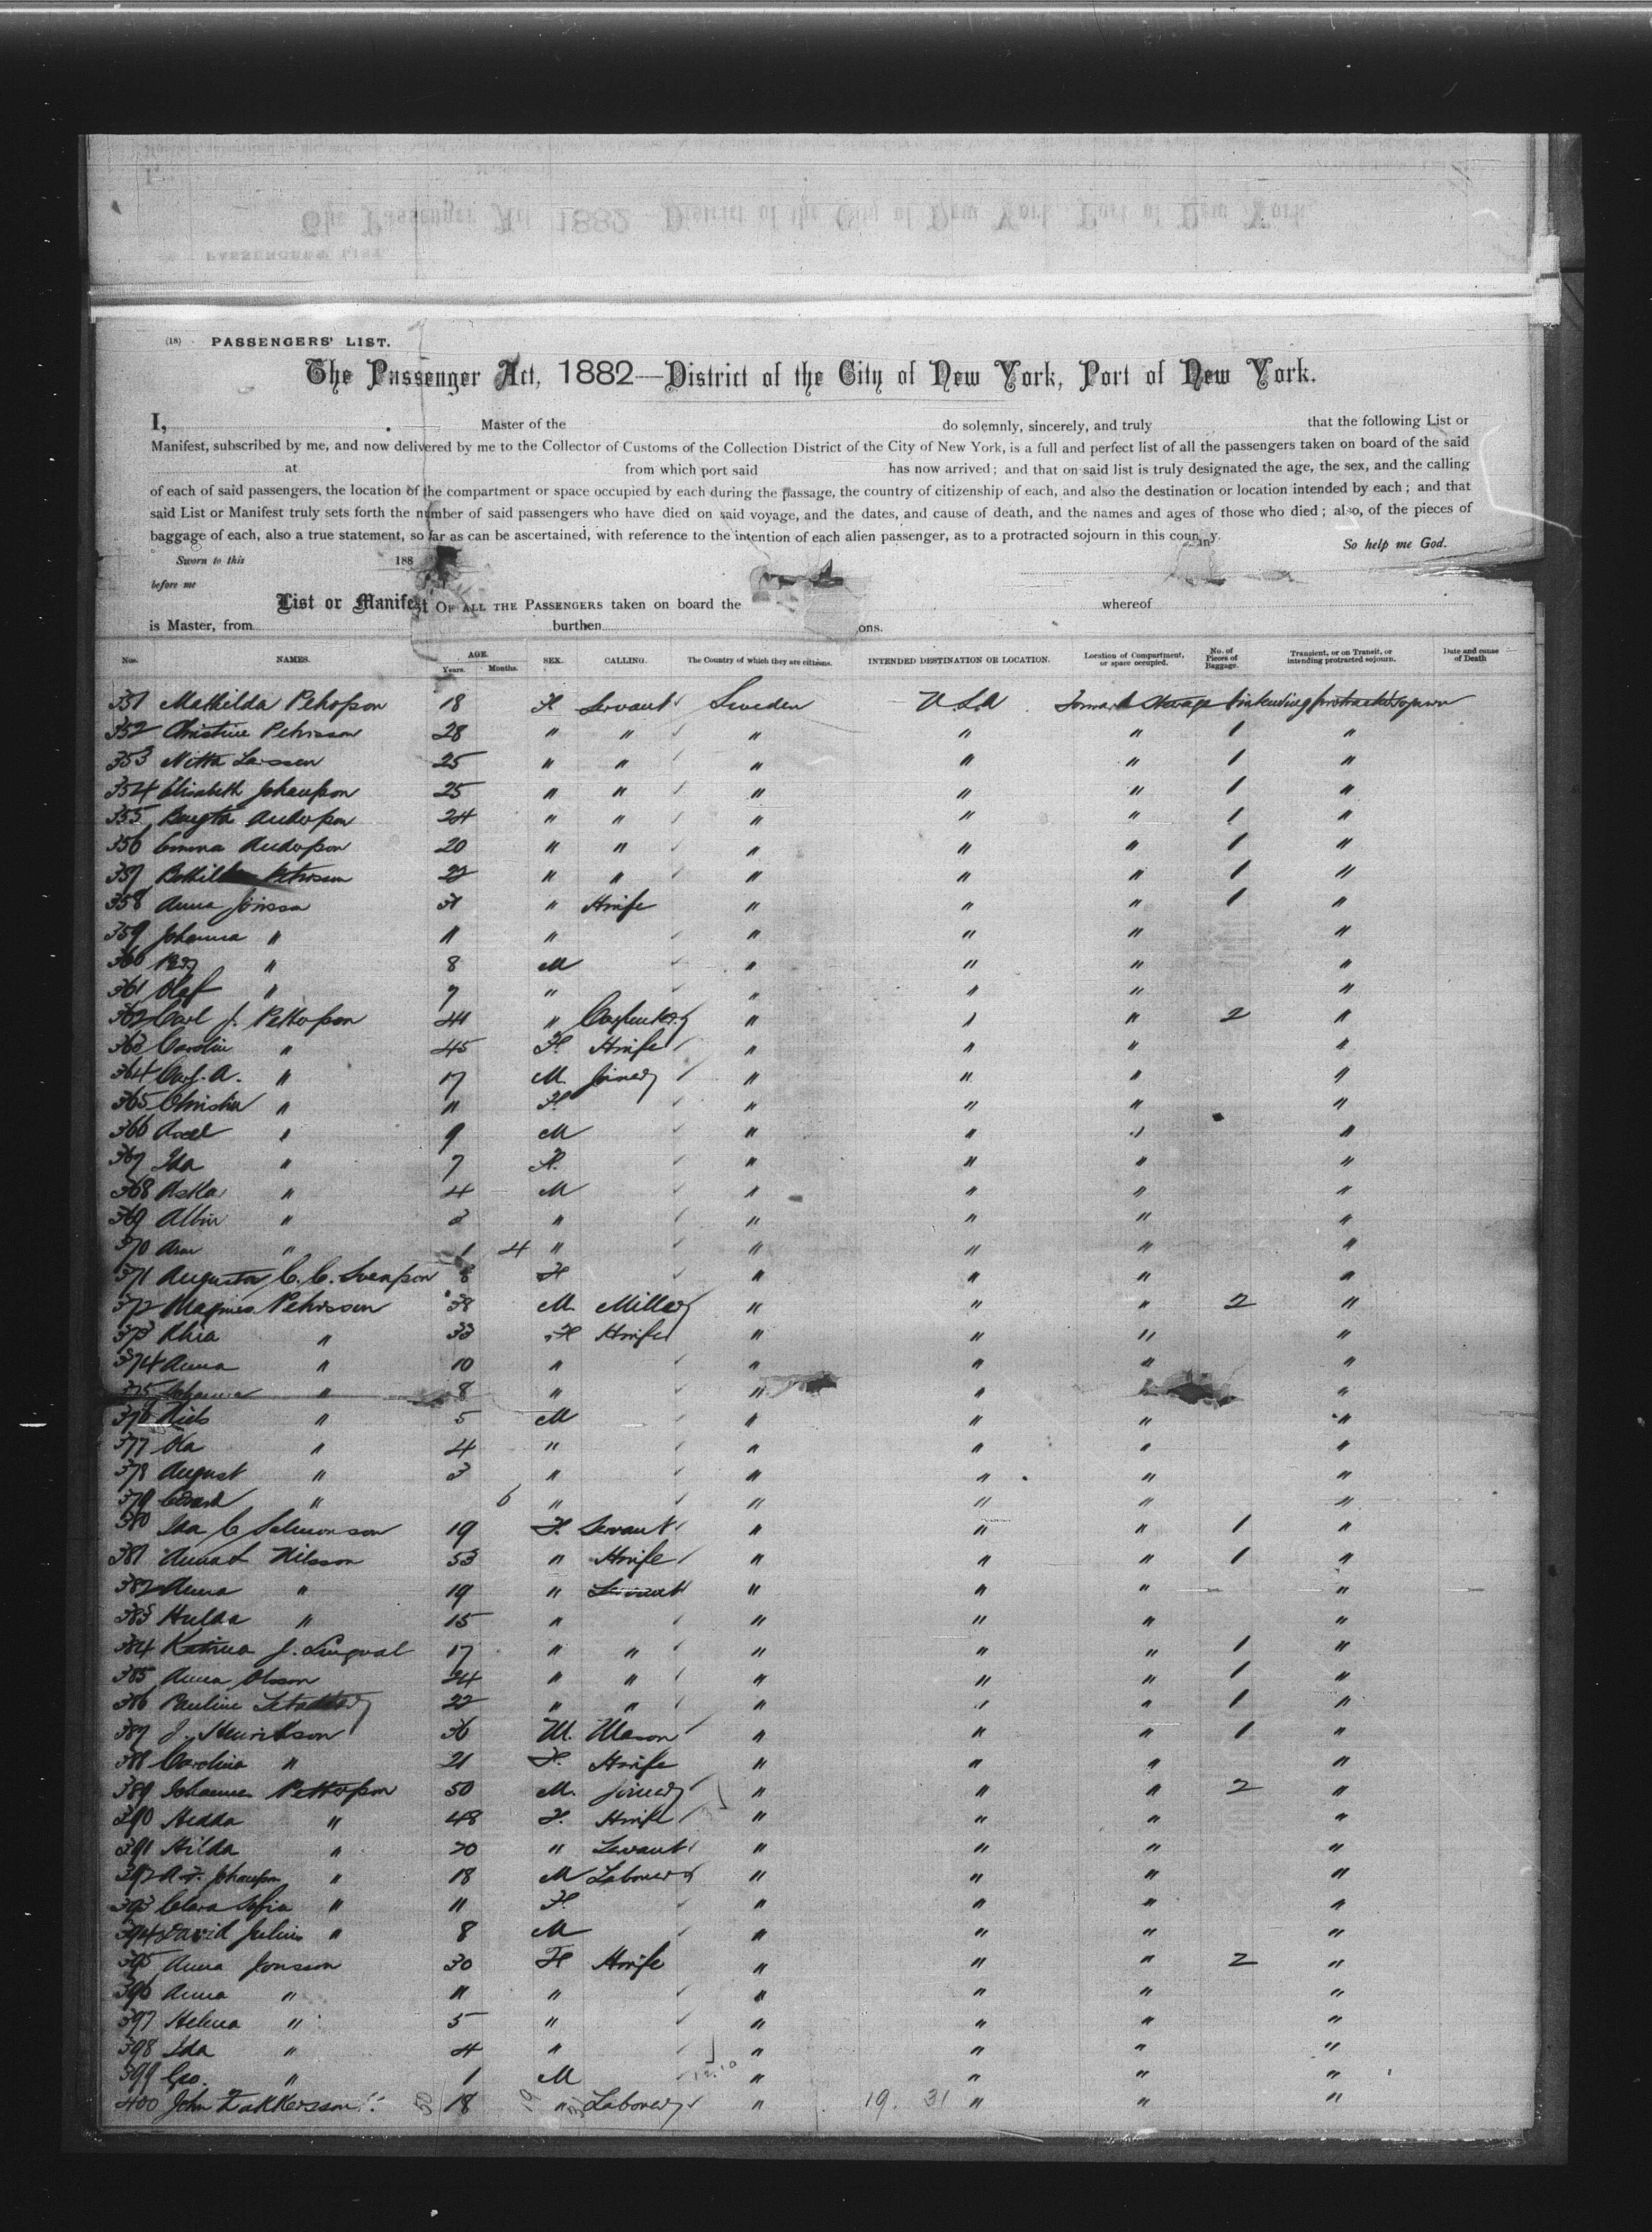 (18) PASSENGERS' LIST.
The Passenger Act, 1882—District of the City of New York, Port of New York.
I, Master of the do solemnly, sincerely, and truly that the following List or
Manifest, subscribed by me, and now delivered by me to the Collector of Customs of the Collection District of the City of New York, is a full and perfect list of all the passengers taken on board of the said
at from which port said has now arrived; and that on said list is truly designated the age, the sex, and the calling
of each of said passengers, the location of the compartment or space occupied by each during the passage, the country of citizenship of each, and also the destination or location intended by each; and that
said List or Manifest truly sets forth the number of said passengers who have died on said voyage, and the dates, and cause of death, and the names and ages of those who died; also, of the pieces of
baggage of each, also a true statement, so far as can be ascertained, with reference to the intention of each alien passenger, as to a protracted sojourn in this country.
So help me God.
Sworn to this 188
before me
List or Manifest OF ALL THE PASSENGERS taken on board the whereof
is Master, from burthen ons.
Nos. NAMES. AGE. Years. Months. SEX. CALLING. The Country of which they are citizens. INTENDED DESTINATION OR LOCATION. Location of Compartment, or space occupied. No. of Pieces of Baggage. Transient, or on Transit, or intending protracted sojourn. Date and cause of Death
351 Mathilda 18 F Servant Sweden U.S.A Forward Steerage 1 intending protracted sojourn
352 Christine Petersson 28 " " " " " 1 "
353 Larsson 25 " " " " " 1 "
354 Elisabeth Johansson 25 " " " " " 1 "
355 Bengta Andersson 24 " " " " " 1 "
356 Emma Andersson 20 " " " " " 1 "
357 22 " " " " " 1 "
358 Anna Jönsson 31 " Hwife " " " 1 "
359 Johanna " 11 " " " " "
360 " 8 M " " " "
361 Olaf " 7 " " " " "
362 Carl J. Petterson 44 " Carpenter " " " 2 "
363 Carolin " 45 F. Hwife " " " "
364 Carl. A. " 17 M. Joiner " " " "
365 Christin " 11 F. " " " "
366 Axel " 9 M " " " "
367 Ida " 7 F. " " " "
368 Oskar " 4 M " " " "
369 Albin " 3 " " " " "
370 " 1 4 " " " " "
371 Augusta C. C. Svensson 8 F " " " "
372 Magnus Petersson 38 M. Miller " " " 2 "
373 " 33 F Hwife " " " "
374 Anna " 10 " " " " "
375 Johanna " 8 " " " " "
376 Niels " 5 M " " " "
377 Ola " 4 " " " " "
378 August " 3 " " " " "
379 Edvard " 6 " " " " "
380 Ida C Salmonson 19 F. Servant " " " 1 "
381 Anna L Nilsson 53 " Hwife " " " 1 "
382 Anna " 19 " Servant " " " "
383 Hulda " 15 " " " " "
384 Katrina J. 17 " " " " " 1 "
385 Anna Olsson 24 " " " " " 1 "
386 Pauline 22 " " " " " 1 "
387 J. Henrikson 36 M. Mason " " " 1 "
388 Carolina " 21 F. Hwife " " " "
389 Johannes Petterson 50 M. Joiner " " " 2 "
390 Hedda " 48 F. Hwife " " " "
391 Hilda " 20 " Servant " " " "
392 A. F. Johansson " 18 M Laborer " " " "
393 Clara Sofia " 11 F. " " " "
394 David Julius " 8 M " " " "
395 Anna Jonsson 30 F Hwife " " " 2 "
396 Anna " 11 " " " " "
397 Helena " 5 " " " " "
398 Ida " 4 " " " " "
399 Geo. " 1 M " " " "
400 John Zakkersson 18 " Laborer " 19. 31 " " "